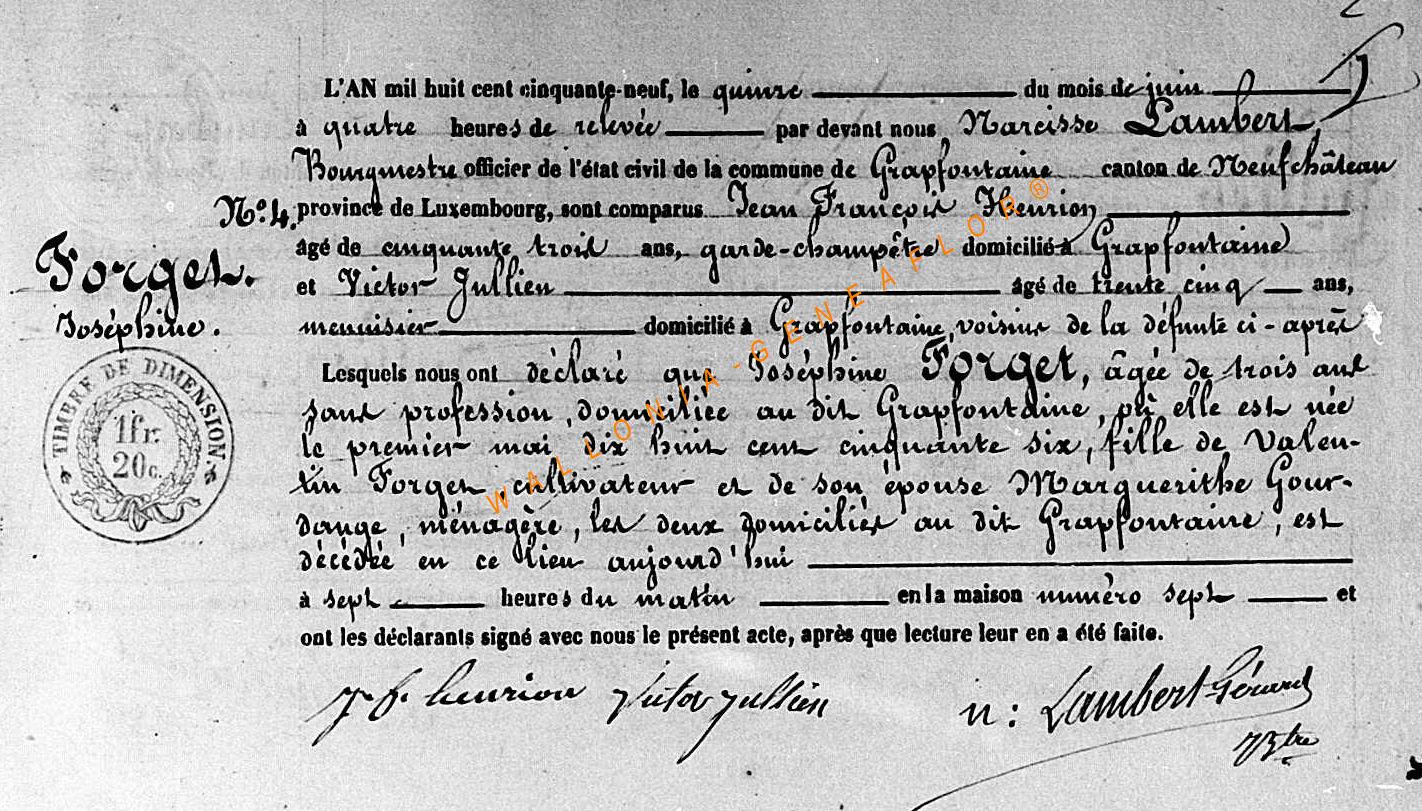 L'AN mil huit cent cinquante-neuf, le quinze du mois de juin
à quatre heures de relevée par devant nous Narcisse Lambert,
Bourgmestre officier de l'état civil de la commune de Grapfontaine canton de Neufchâteau
N.o 4. province de Luxembourg, sont comparus Jean François Henrion
âgé de cinquante trois ans, garde-champêtre domicilié à Grapfontaine
Forget.
et Victor Jullien âgé de trente cinq ans,
Joséphine.
menuisier domicilié à Grapfontaine, voisins de la défunte ci-après
Lesquels nous ont déclaré que Joséphine Forget, âgée de trois ans
sans profession, domiciliée au dit Grapfontaine, où elle est née
le premier mai dix huit cent cinquante six, fille de Valen-
tin Forget, cultivateur et de son épouse Marguerithe Gour-
dange, ménagère, les deux domiciliés au dit Grapfontaine, est
décédée en ce lieu aujourd'hui
à sept heures du matin en la maison numéro sept et
ont les déclarants signé avec nous le présent acte, après que lecture leur en a été faite.
TIMBRE DE DIMENSION.
1fr.
20c.
J. f. henrion Victor Jullien n: Lambert-Gérard
Btre
WALLONIA-GENEAFLOR®